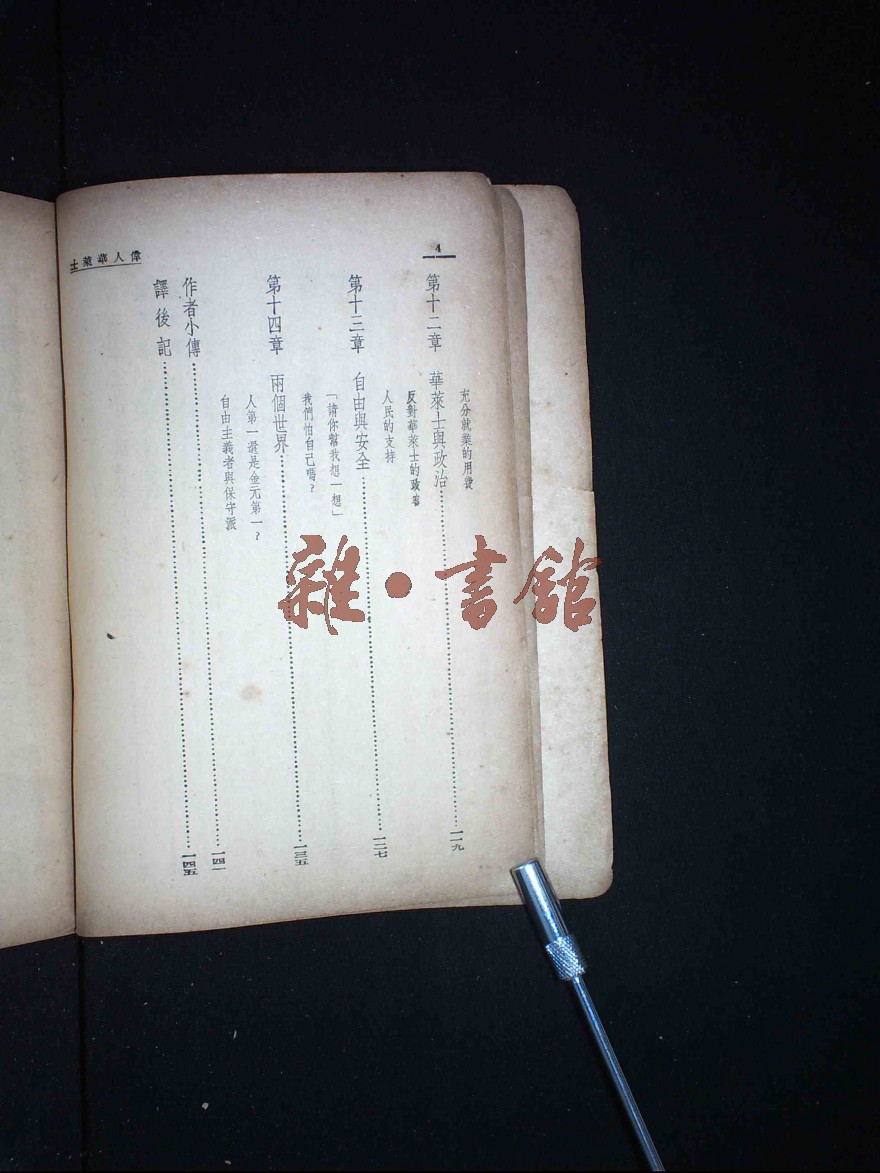 4
充分就業的用費
第十二章 華萊士與政治……一一九
反對華萊士的政客
人民的支持
第十三章 自由與安全……一二七
「請你幫我想一想」
我們怕自己嗎？
第十四章 兩個世界……一三五
人第一還是金元第一？
自由主義者與保守派
作者小傳……一四一
譯後記……一四五
偉人華萊士
雜·書館